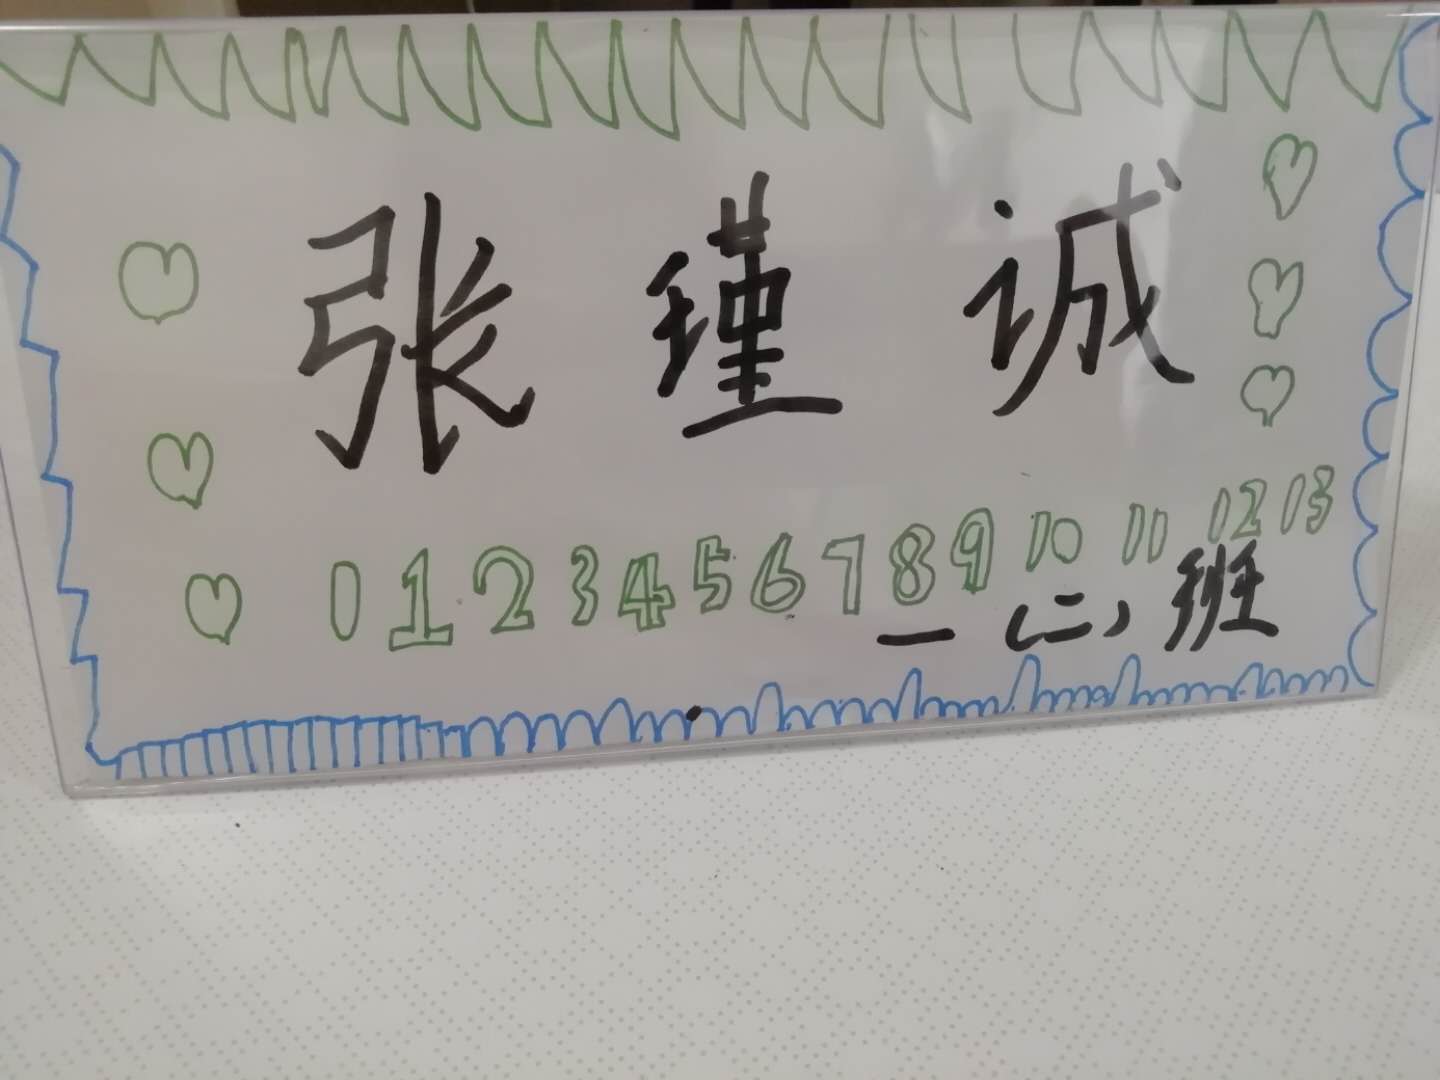 张瑾诚
0 1 2 3 4 5 6 7 8 9 10 11 12 13
一(二)班